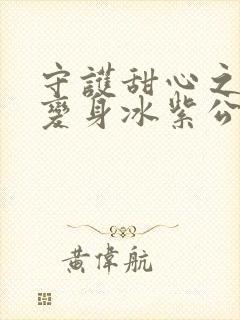 守護甜心之
變身冰紫公
黃偉航